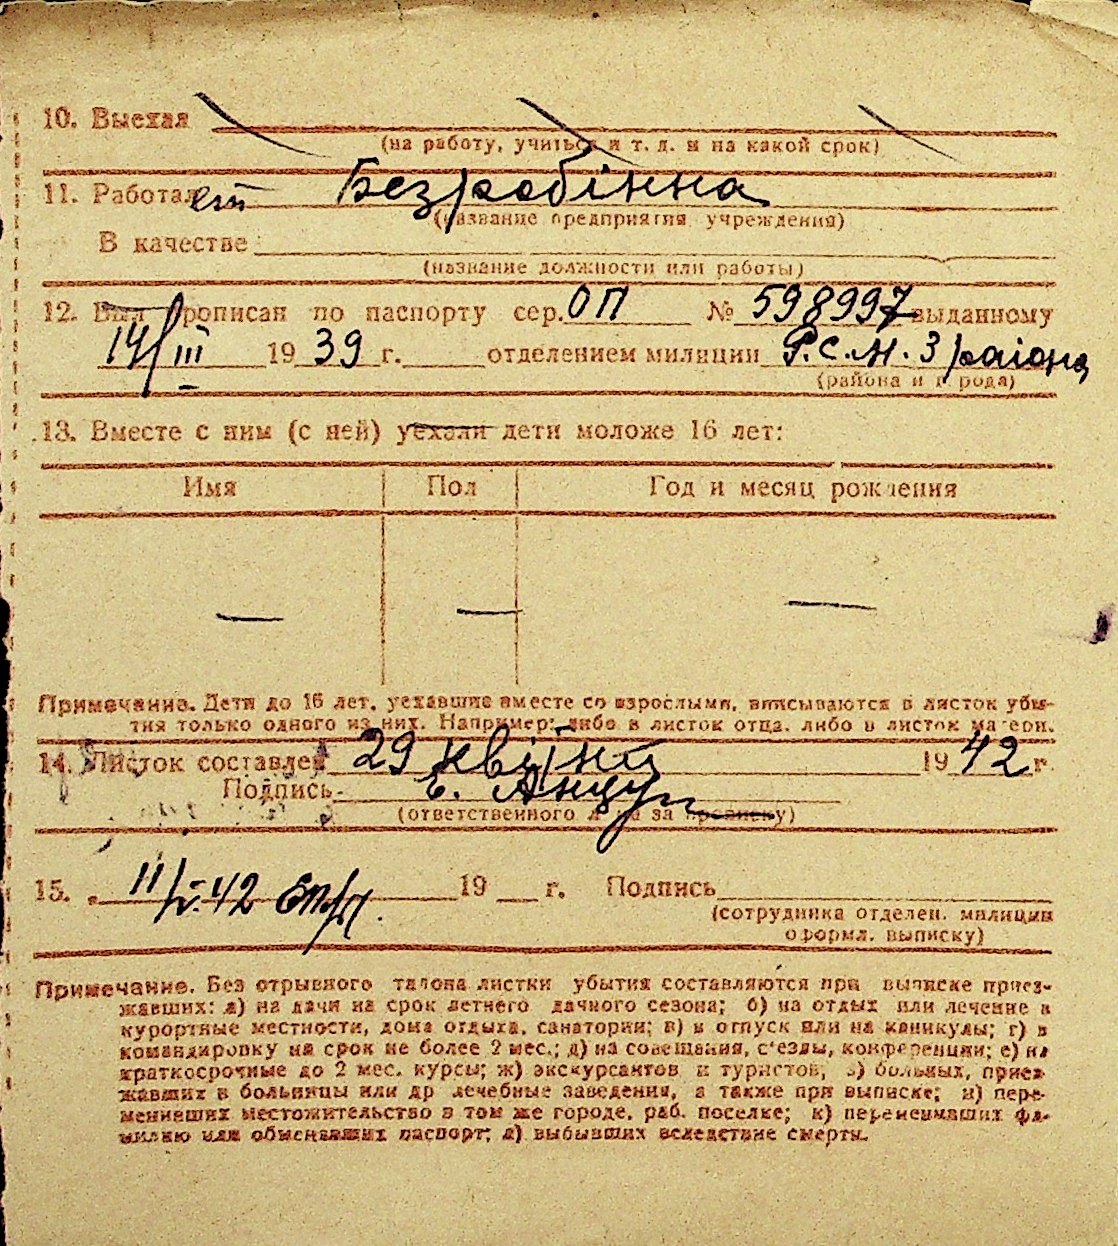 10. Выехал
(на работу, учиться и т. д. и на какой срок)
11. Работает Безробітна
(название предприятия учреждения)
В качестве
(название должности или работы)
12. Был прописан по паспорту сер. ОП № 598997 выданному
14/III 1939 г. отделением милиции Р.С.М. 3 района
(района и города)
13. Вместе с ним (с ней) уехали дети моложе 16 лет:
Имя Пол Год и месяц рождения
— — —
Примечание. Дети до 16 лет, уехавшие вместе со взрослыми, вписываются в листок убы-
тия только одного из них. Например: либо в листок отца, либо в листок матери.
14. Листок составлен 29 квітня 1942 г.
Подпись
(ответственного лица за прописку)
15. 11/V.42 19 г. Подпись
(сотрудника отделен. милиции
оформл. выписку)
Примечание. Без отрывного талона листки убытия составляются при выписке приез-
жавших: а) на дачи на срок летнего дачного сезона; б) на отдых или лечение в
курортные местности, дома отдыха, санатории; в) в отпуск или на каникулы; г) в
командировку на срок не более 2 мес.; д) на совещания, с'езды, конференции; е) на
краткосрочные до 2 мес. курсы; ж) экскурсантов и туристов; з) больных, приез-
жавших в больницы или др лечебные заведения, а также при выписке; и) пере-
менивших местожительство в том же городе, раб. поселке; к) переменивших фа-
милию или обменявших паспорт; л) выбывших вследствие смерти.